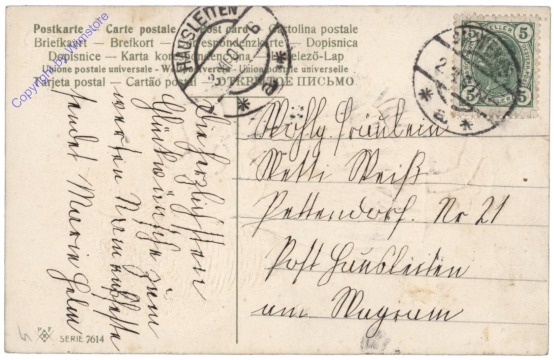 Postkarte — Carte postale — Post card — Cartolina postale
Briefkaart — Brefkort — Correspondenzkarte — Dopisnica
Dopisnice — Karta korespondencyjna — Levelező-Lap
Union postale universelle — Weltpostverein — Union postale universelle
Tarjeta postal — Cartão postal — ОТКРЫТОЕ ПИСЬМО
HAUSLEITEN
5
5
5
5
Copyright by Wirnstore
Die herzlichsten
Glückwünsche zum
werten Namensfeste
sendet Marie Helm
Wohlg Fräulein
Netti Weiß
Pettendorf. Nr 21
Post Hausleiten
am Wagram
SERIE 7614